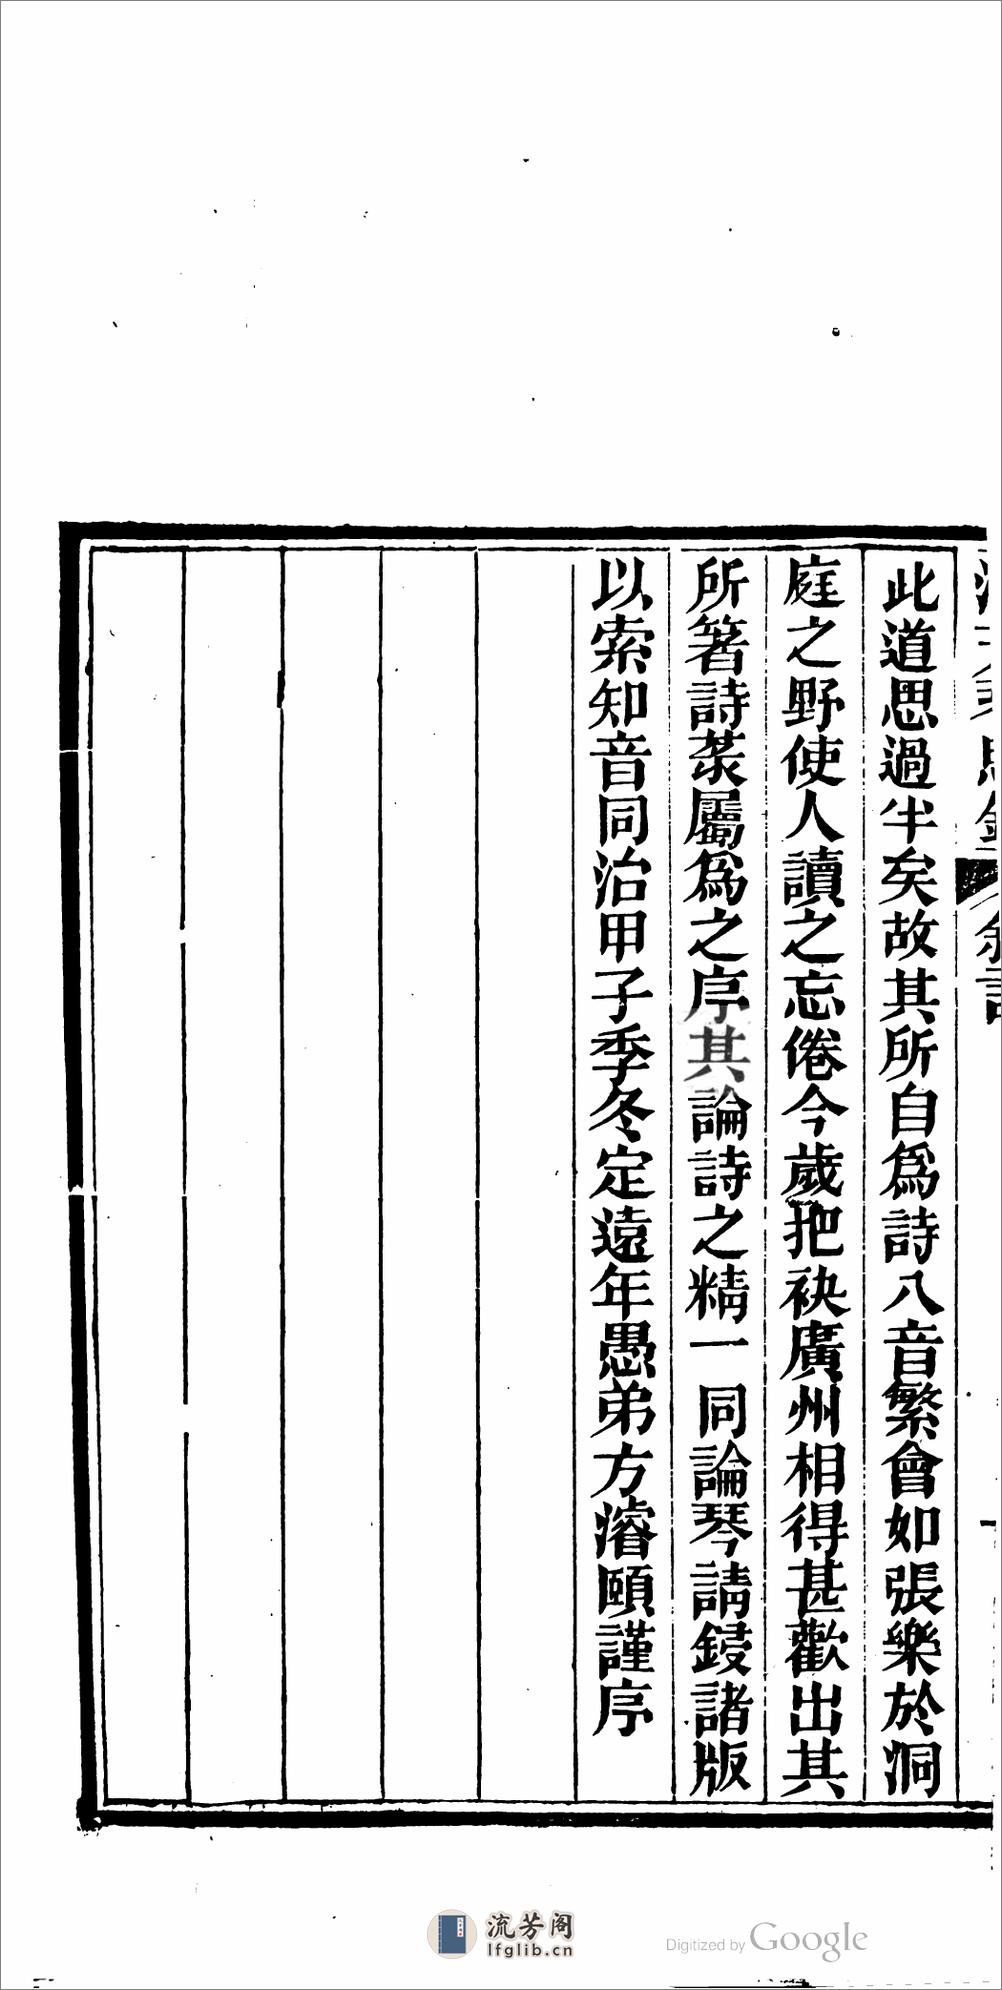 此道思過半矣故其所自為詩八音繁會如張樂於洞
庭之野使人讀之忘倦今歲把袂廣州相得甚歡出其
所箸詩彔屬為之序其論詩之精一同論琴請鋟諸版
以索知音同治甲子季冬定遠年愚弟方濬頤謹序
流芳阁
lfglib.cn
Digitized by Google